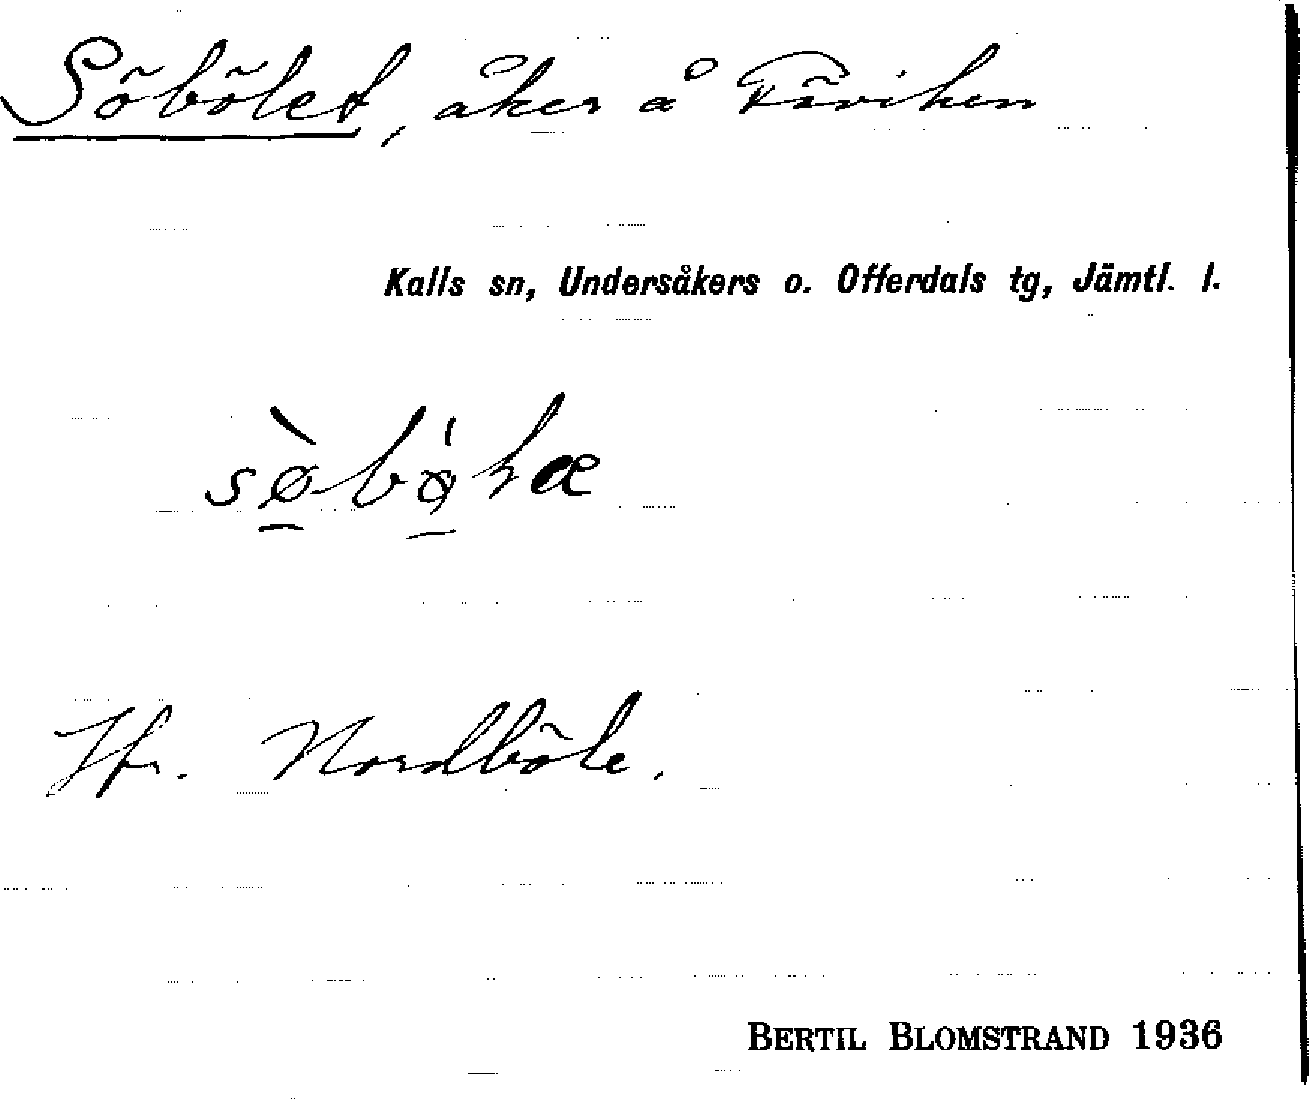 Söbölet, åker å Fäviken
Kalls sn, Undersåkers o. Offerdals tg, Jämtl. l.
Jfr. Nordböle.
BERTIL BLOMSTRAND 1936